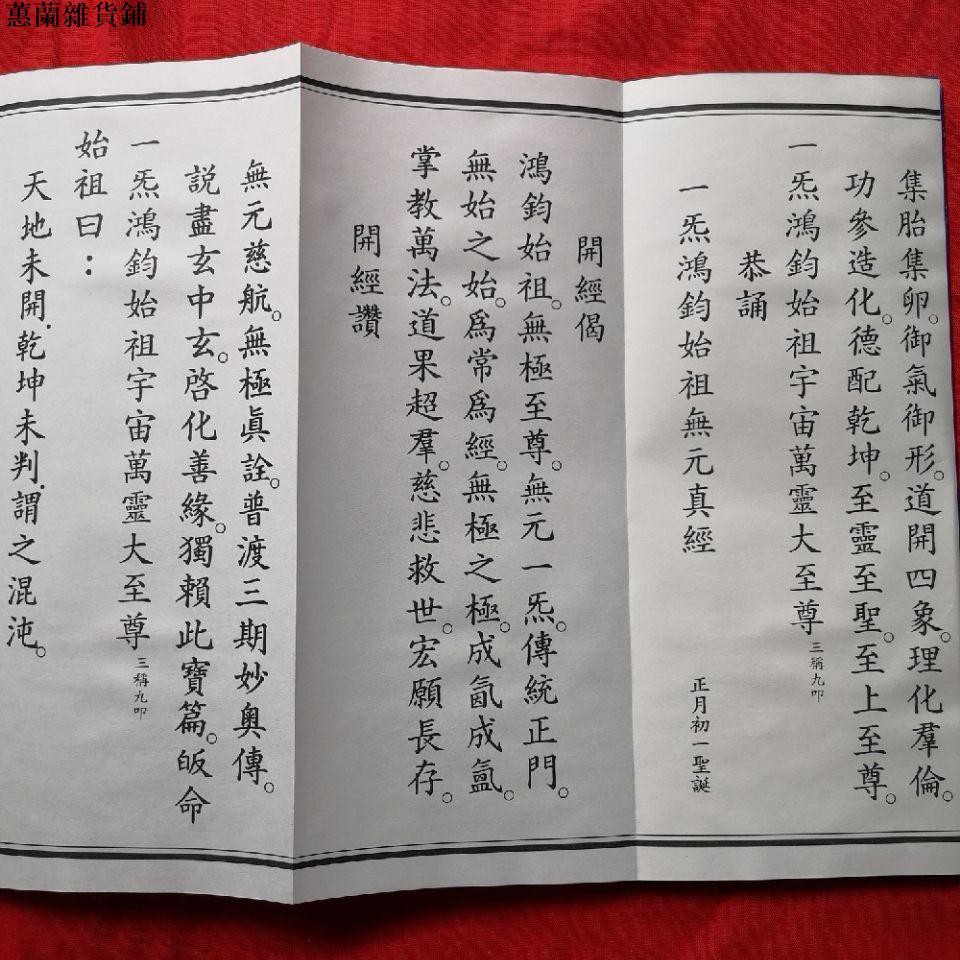 蕙蘭雜貨鋪
集胎集卵。御氣御形。道開四象。理化羣倫。
功參造化。德配乾坤。至靈至聖。至上至尊。
一炁鴻鈞始祖宇宙萬靈大至尊 三稱九叩
恭誦
一炁鴻鈞始祖無元真經 正月初一聖誕
開經偈
鴻鈞始祖。無極至尊。無元一炁。傳統正門。
無始之始。爲常爲經。無極之極。成氤成氳。
掌教萬法。道果超羣。慈悲救世。宏願長存。
開經讚
無元慈航。無極眞詮。普渡三期妙奧傳。
説盡玄中玄。啓化善緣。獨賴此寶篇。皈命
一炁鴻鈞始祖宇宙萬靈大至尊 三稱九叩
始祖曰：
天地未開.乾坤未判.謂之混沌。